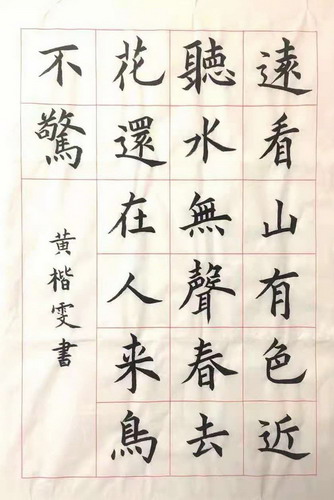 遠看山有色近
聽水無聲春去
花還在人来鳥
不驚
黄楷雯書